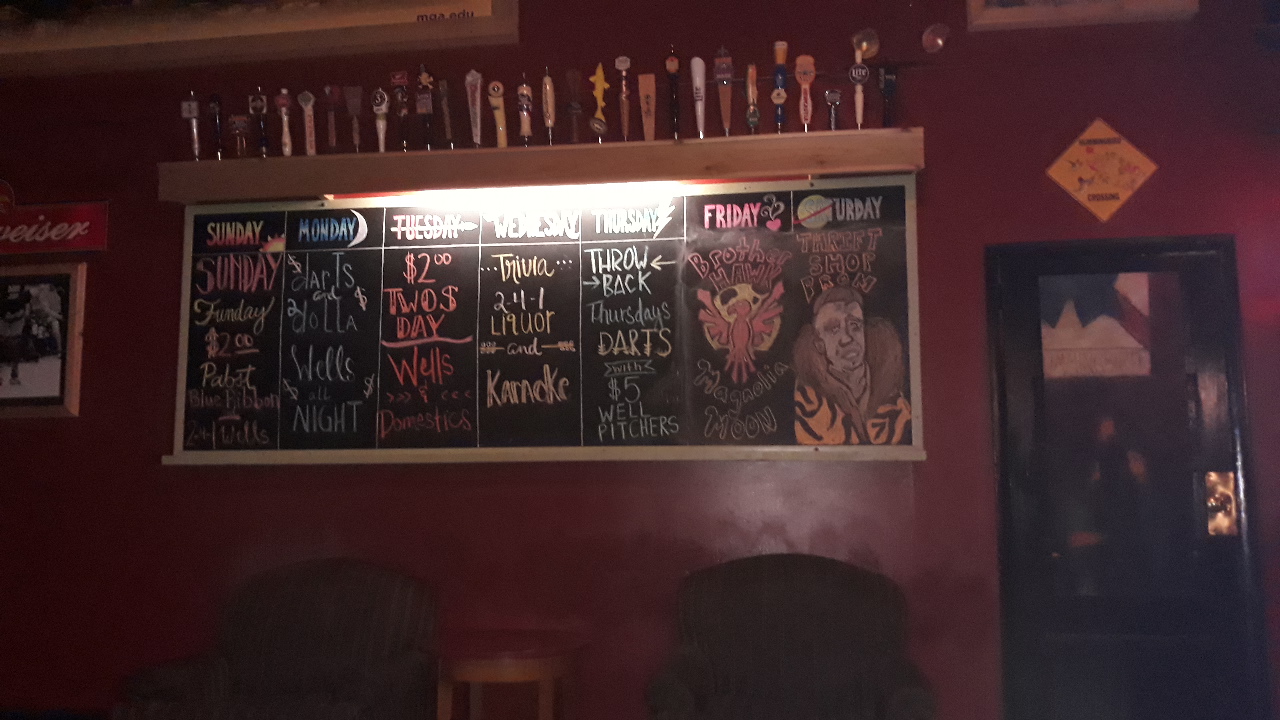 mga.edu
weiser
LITE
CROSSING
SUNDAY
SUNDAY
Funday
$2.00
Pabst
Blue Ribbon
2-4-1 Wells
MONDAY
DARTS
and
DOLLA
Wells
all
NIGHT
TUESDAY
$2.00
TWO$
DAY
Wells
&
>>> <<<
Domestics
WEDNESDAY
...Trivia...
2-4-1
LIQUOR
and
Karaoke
THURSDAY
THROW
BACK
Thursdays
DARTS
with
$5
WELL
PITCHERS
FRIDAY
Brother
HAWK
Magnolia
MOON
SATURDAY
THRIFT
SHOP
PROM